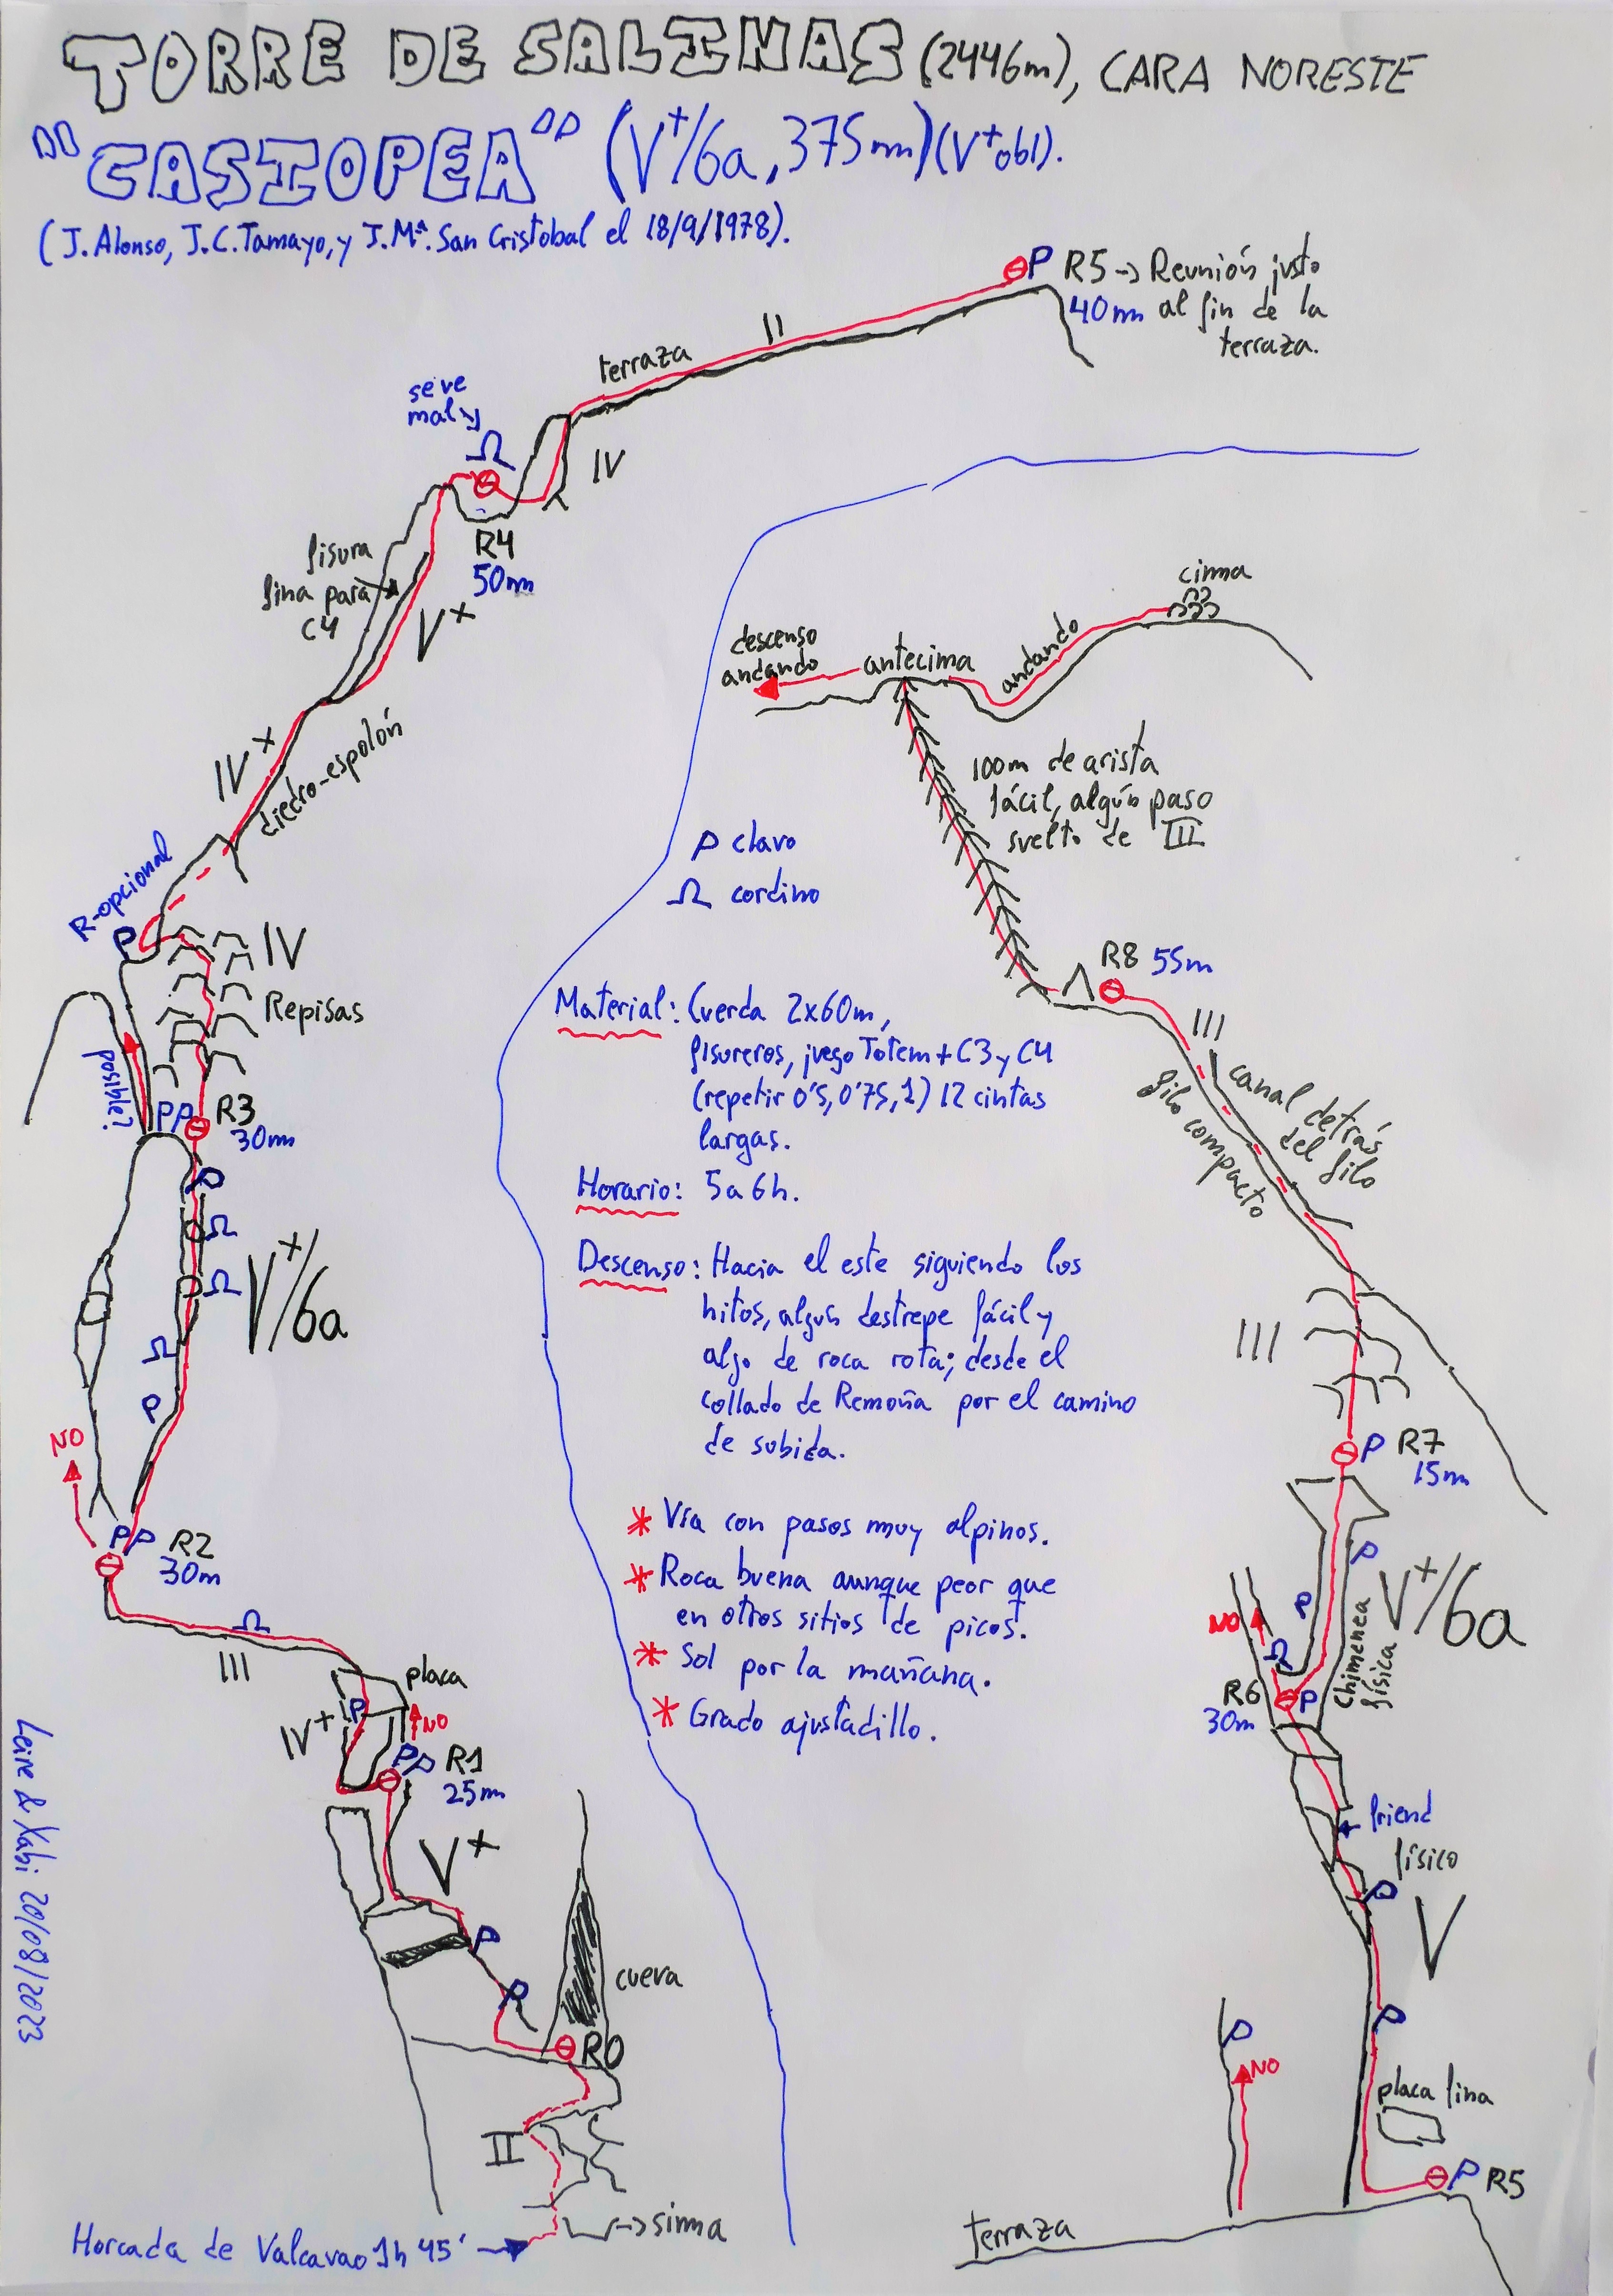 TORRE DE SALINAS (2446m), CARA NORESTE
"CASIOPEA" (V+/6a, 375m)(V+obl).
(J. Alonso, J.C. Tamayo, y J.Mª. San Cristobal el 18/9/1978).
P R5 -> Reunión justo
40m al fin de la
terraza.
II
terraza
se ve
mal
Ω
IV
R4
50m
fisura
fina para
C4
V+
IV+
diedro-espolón
R-opcional
P
IV
Repisas
posible?
PP R3
30m
P
Ω
Ω
V+/6a
Ω
P
NO
PP R2
30m
Ω
III
placa
P
NO
IV+
PP R1
25m
V+
P
P
cueva
R0
II
-> sima
Horcada de Valcavao 1h 45'
Leire & Xabi 20/08/2023
cima
descenso
andando
antecima
andando
100m de arista
fácil, algún paso
suelto de III
P clavo
Ω cordino
R8 55m
III
canal detrás
del filo
filo compacto
III
P R7
15m
P
V+/6a
P
Chimenea
física
NO
Ω
R6 P
30m
friend
físico
P
V
P
P
NO
placa fina
P R5
terraza
Material: Cuerda 2x60m,
fisureros, juego Totem + C3 y C4
(repetir 0'5, 0'75, 1) 12 cintas
largas.
Horario: 5 a 6h.
Descenso: Hacia el este siguiendo los
hitos, algún destrepe fácil y
algo de roca rota; desde el
collado de Remoña por el camino
de subida.
* Vía con pasos muy alpinos.
* Roca buena aunque peor que
en otros sitios de picos.
* Sol por la mañana.
* Grado ajustadillo.